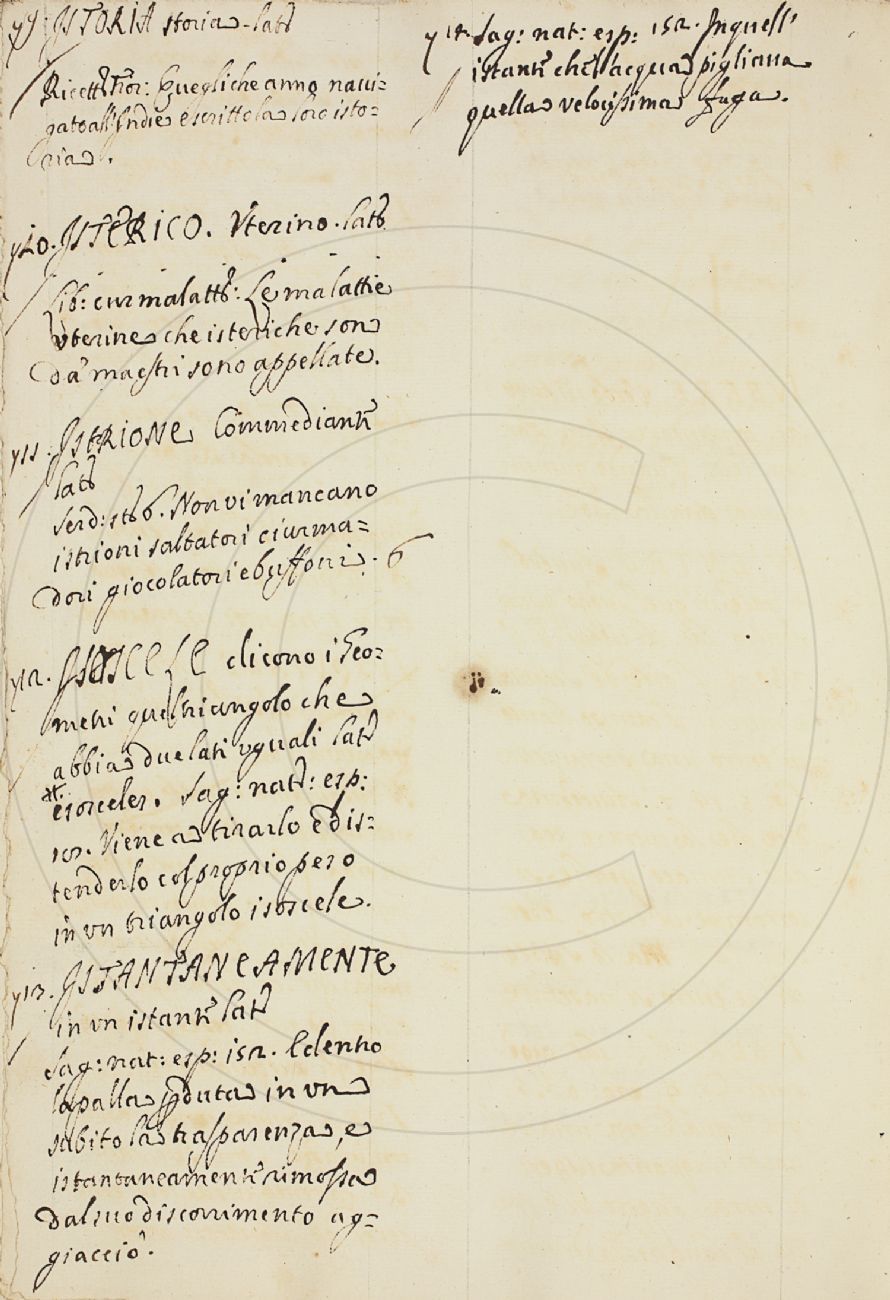 y9. JSTORIA storia. lat.
Ricett. Fior: Quegli che anno navi=
gato all'Indie e scritto la loro isto=
ria.
y10. JSTERICO. Vterino. lat.
Lib: cur malatt: Le malattie
vterine che isteriche son
da maestri sono appellate.
y11. JSTRIONE Commediante
lat.
Serd: st. 6. Non vi mancano
istrioni saltatori ciurma=
dori giocolatori e buffoni. 6
y12. JSOSCELE dicono i Geo=
metri quel triangolo che
abbia due lati uguali lat.
isosceles. Sag: nat: esp:
Viene a tirarlo e dis=
tenderlo col proprio peso
in vn triangolo isoscele.
y13. JSTANTANEAMENTE
in vn istante lat.
Sag: nat: esp: 152. E dentro
la palla pduta in vn
subito la trasparenza, e
istantaneamente rimossa
dal suo discorrimento ag=
giacciò.
y14. Sag: nat: esp: 152. In quell'
istante che l'acqua pigliava
quella velocissima fuga.